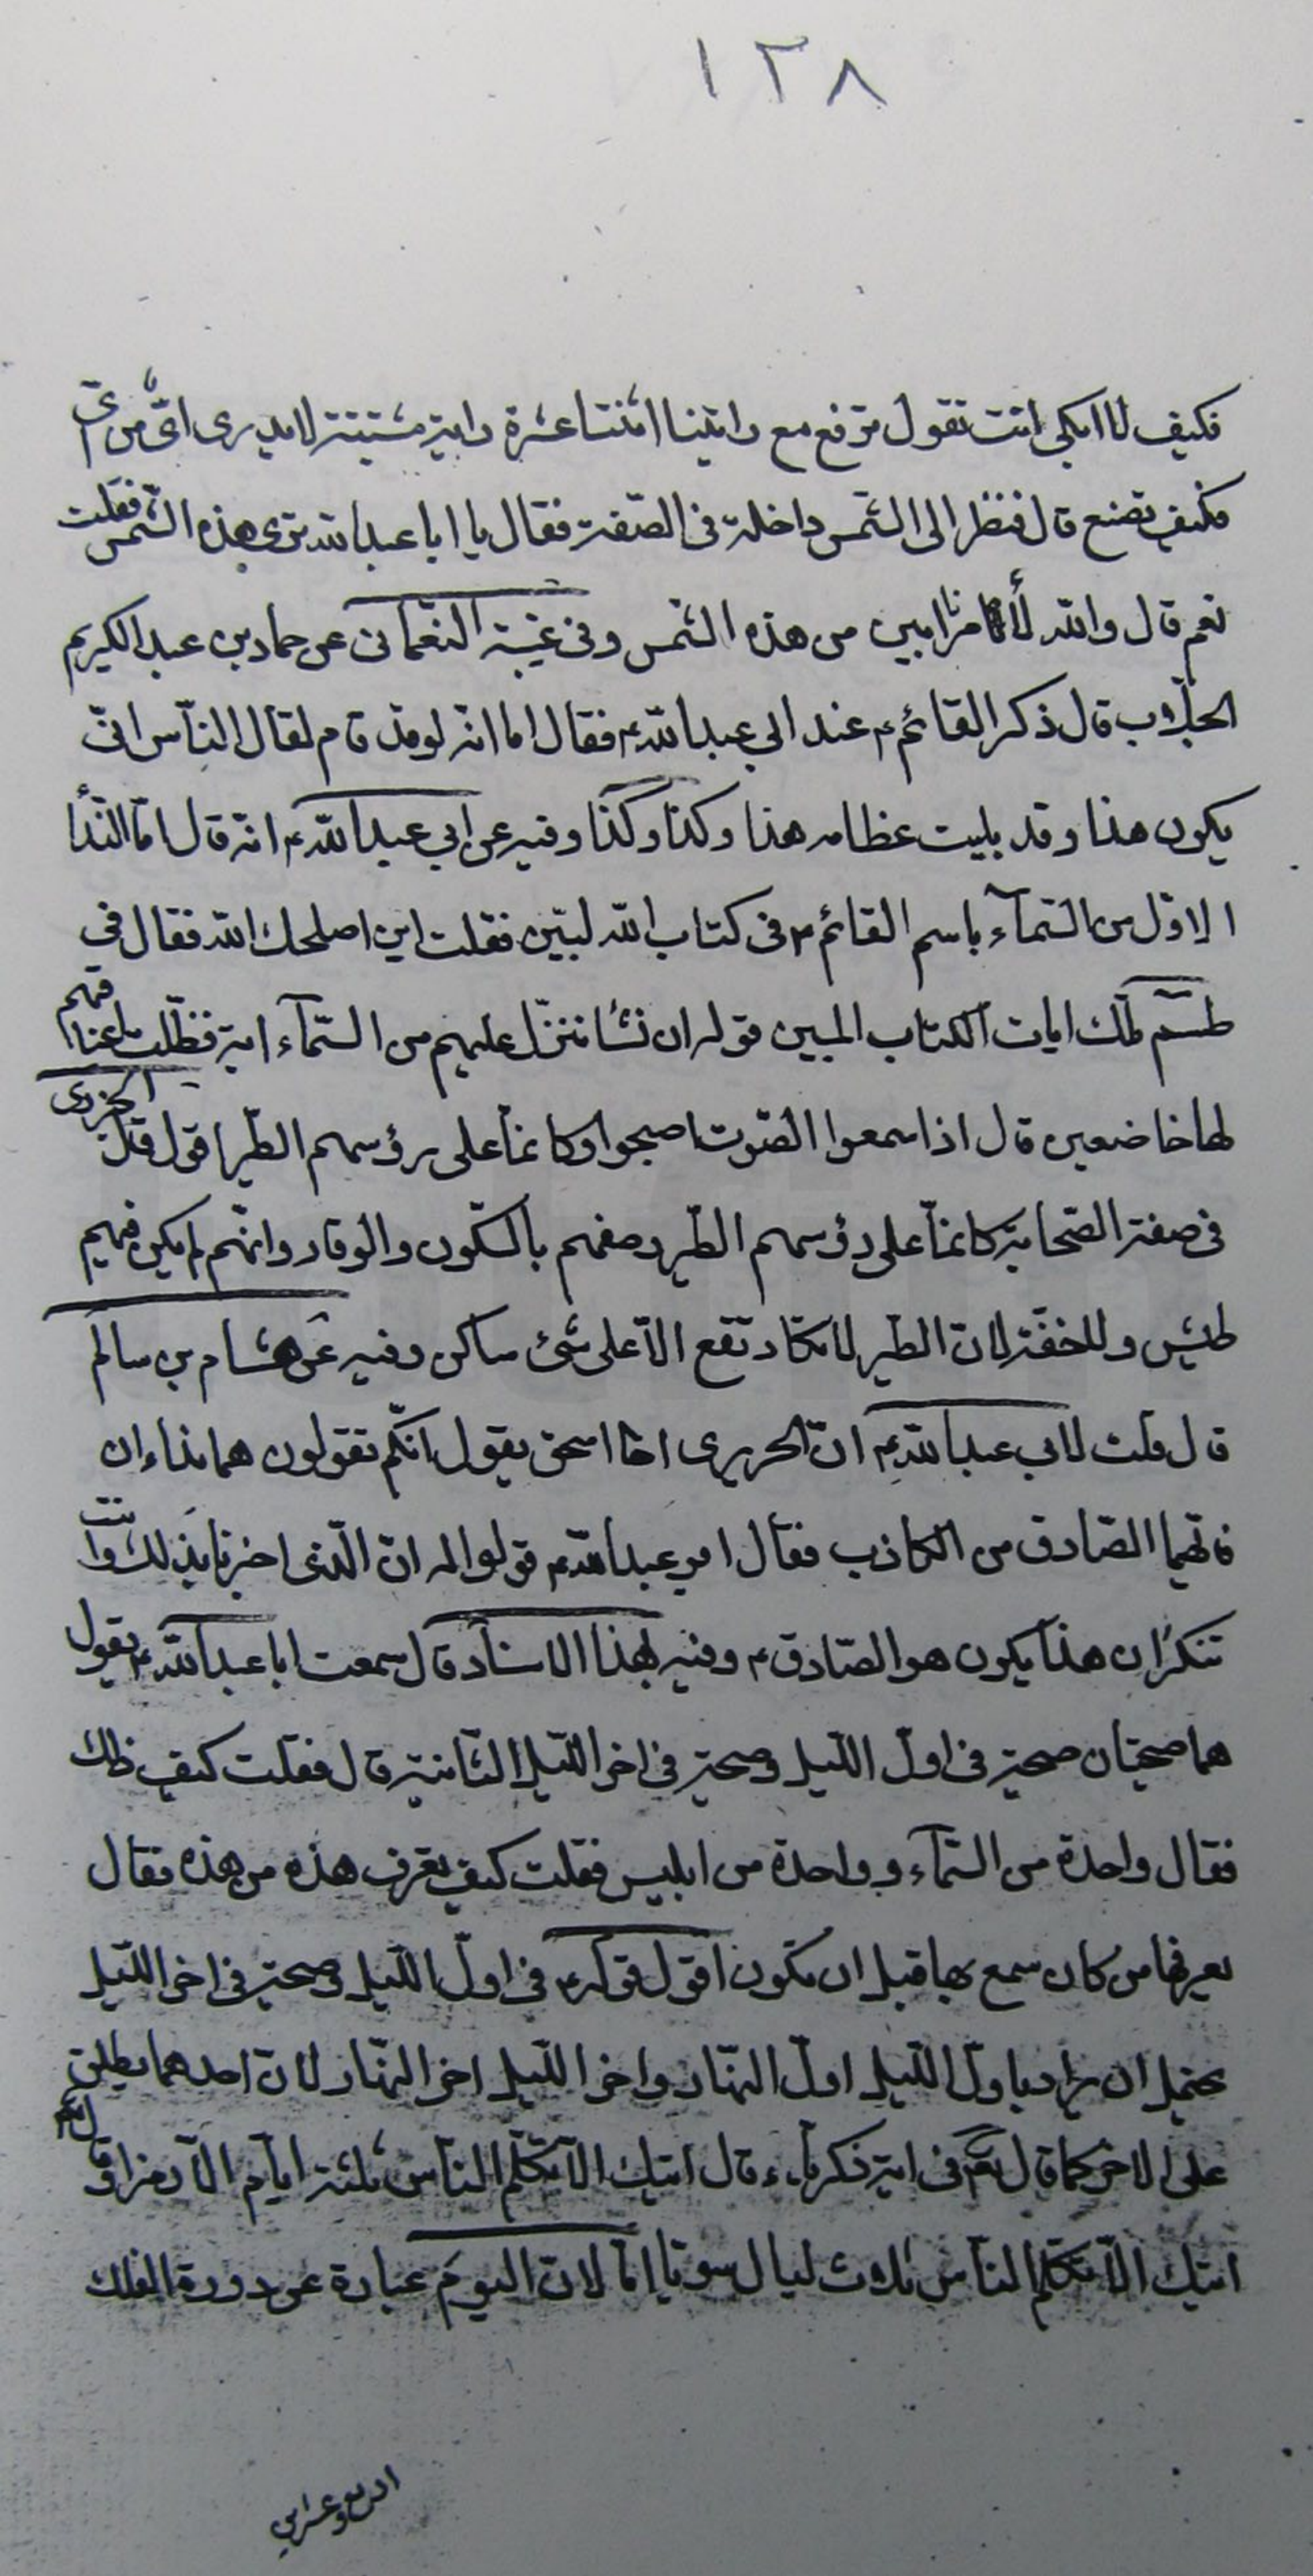 ١٣٨
فكيف لا ابكى انت تقول ترفع مع راتينا اثنتا عشرة راية مشتبهة لا يدرى اىّ من اىّ
فكيف نصنع قال فنظر الى الشمس داخلة فى الصّفة فقال يا ابا عبد الله ترى هذه الشّمس فقلت
نعم قال والله لأمرنا ابين من هذه الشمس وفى غيبة النعمانى عن حماد بن عبد الكريم
الجلّاب قال ذكر القائم ع عند ابي عبد الله ع فقال اما انّه لو قد قام لقال النّاس انّى
يكون هذا وقد بليت عظامه هذا وكذا وكذا وفيه عن ابي عبد الله ع انّه قال امّا النّدأ
الاوّل من السّمآء باسم القائم ع فى كتاب الله لبيّن فقلت اين اصلحك الله فقال في
طسم تلك ايات الكتاب المبين قوله ان نشأ ننزّل عليهم من السّمآء اية فظلّت اعناقهم
لها خاضعين قال اذا سمعوا الصّوت اصبحوا وكانما على رؤسهم الطّير اقول قال الجزرى
فى صفة الصّحابة كانمّا على رؤسهم الطّير وصفهم بالسّكون والوقار وانّهم لم يكن فيهم
طيش ولا خفّة لان الطّير لا تكاد تقع الّا على شئ ساكن وفيه عن هشام بن سالم
قال قلت لابي عبد الله ع انّ الحريرى اخا اسحق يقول انّكم تقولون هما نداءان
فايّهما الصّادق من الكاذب فقال ابو عبد الله ع قولوا له ان الّذى اخبرنا بذلك وانت
تنكر ان هذا يكون هو الصّادق ع وفيه بهذا الاسناد قال سمعت ابا عبد الله ع يقول
هما صيحتان صيحة فى اول اللّيل وصيحة فى اخر اللّيلة الثّانية قال فقلت كيف ذلك
فقال واحدة من السّمآء وواحدة من ابليس فقلت كيف تعرف هذه من هذه فقال
يعرفها من كان سمع بها قبل ان تكون اقول قوله ع فى اوّل اللّيل وصيحة فى اخر اللّيل
يحتمل ان يراد باول اللّيل اول النّهار واخر اللّيل اخر النّهار لان احدهما يطلق
على الاخر كما قال تعم فى اية زكريّاء قال ايتك الّا تكلّم النّاس ثلثة ايّام الّا رمزا وقال تعم
ايتك الّا تكلّم النّاس ثلاث ليال سويّا امّا لان اليوم عبارة عن دورة الفلك